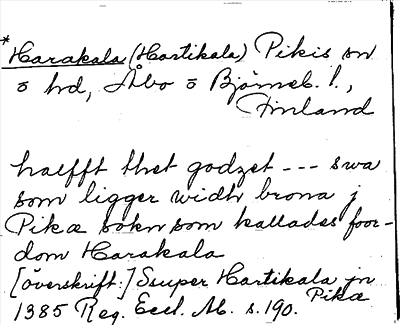 *Harakala (Hartikala) Pikis sn
o hd, Åbo o Björneb. l.,
Finland
halfft thet godzet --- swa
som ligger widh brona j
Pikæ sokn som kallades foor-
dom Harakala
[överskrift:] Ssuper Hartikala jn
Pikæ
1385 Reg. Eccl. Ab. s. 190.